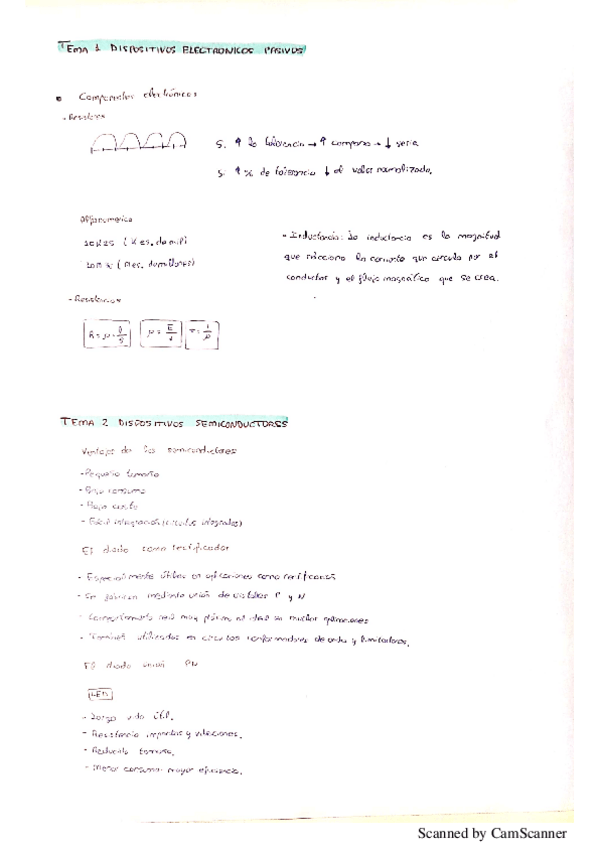 TEMA 1 DISPOSITIVOS ELECTRONICOS PASIVOS
Componentes electrónicos
- Resistores
S. ↑ la tolerancia → ↑ compenso → ↓ serie
S. ↑ % de tolerancia ↓ el valor normalizado.
Alfanumerico
(K es. de mil)
(M es. de millones)
- Inductancia: La inductancia es la magnitud
que relaciona la corriente que circula por el
conductor y el flujo magnético que se crea.
- Resistencia
TEMA 2 DISPOSITIVOS SEMICONDUCTORES
Ventajas de los semiconductores
- Pequeño tamaño
- Bajo consumo
- Bajo costo
- Fácil integración (circuitos integrados)
El diodo como rectificador
- Especialmente útiles en aplicaciones como rectificador
- Se fabrican mediante unión de cristales P y N
- Comportamiento real muy próximo al ideal en muchas aplicaciones
- Tambien utilizados en circuitos conformadores de onda y limitadores.
El diodo unión PN
LED
- Larga vida útil.
- Resistencia impactos y vibraciones.
- Reducido tamaño.
- Menor consumo mayor eficiencia.
Scanned by CamScanner